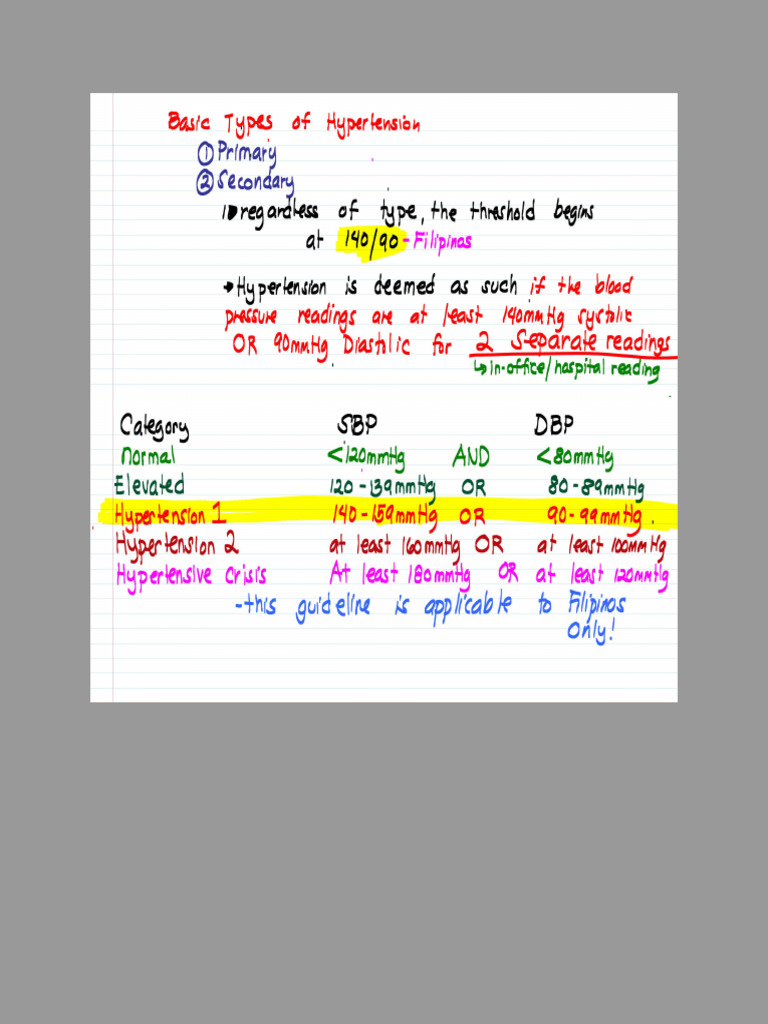 Basic Types of Hypertension
① Primary
② Secondary
regardless of type, the threshold begins
at 140/90 - Filipinas
→ Hypertension is deemed as such if the blood
pressure readings are at least 140mmHg systolic
OR 90mmHg Diastolic for 2 separate readings
↳ in-office/hospital reading
Category SBP DBP
normal <120mmHg AND <80mmHg
Elevated 120-139mmHg OR 80-89mmHg
Hypertension 1 140-159mmHg OR 90-99mmHg.
Hypertension 2 at least 160mmHg OR at least 100mmHg
Hypertensive crisis At least 180mmHg OR at least 120mmHg
-this guideline is applicable to Filipinos
Only!